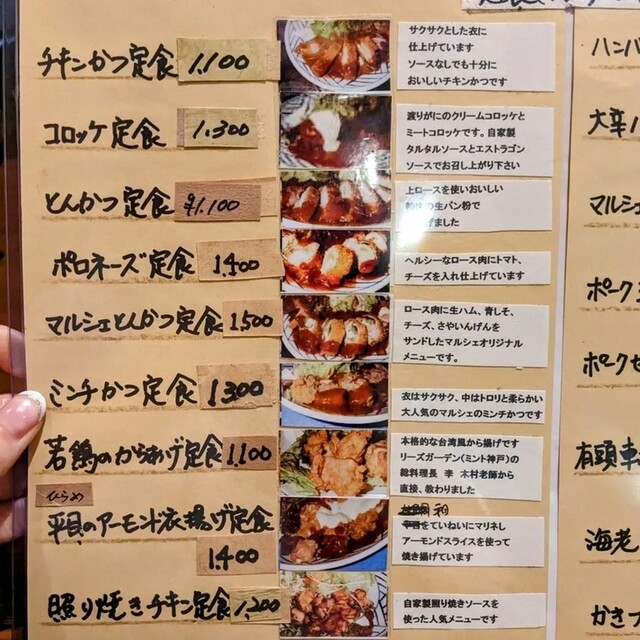 チキンかつ定食 1.100
サクサクとした衣に
仕上げています
ソースなしでも十分に
おいしいチキンかつです
コロッケ定食 1.300
渡りがにのクリームコロッケと
ミートコロッケです。自家製
タルタルソースとエストラゴン
ソースでお召し上がり下さい
とんかつ定食 ¥1.100
上ロースを使いおいしい
の生パン粉で
ました
ポロネーズ定食 1.400
ヘルシーなロース肉にトマト、
チーズを入れ仕上げています
マルシェとんかつ定食 1.500
ロース肉に生ハム、青しそ、
チーズ、さやいんげんを
サンドしたマルシェオリジナル
メニューです。
ミンチかつ定食 1.300
衣はサクサク、中はトロリと柔らかい
大人気のマルシェのミンチかつです
若鶏のからあげ定食 1.100
本格的な台湾風から揚げです
リーズガーデン(ミント神戸)の
総料理長 李 木村老師から
直接、教わりました
ひらめ
平貝のアーモンド衣揚げ定食
1.400
をていねいにマリネし
アーモンドスライスを使って
焼き揚げています
照り焼きチキン定食 1.200
自家製照り焼きソースを
使った人気メニューです
ハンバ
大辛ハ
マルシェ
ポーク
ポークセ
有頭車
海老
かきフ